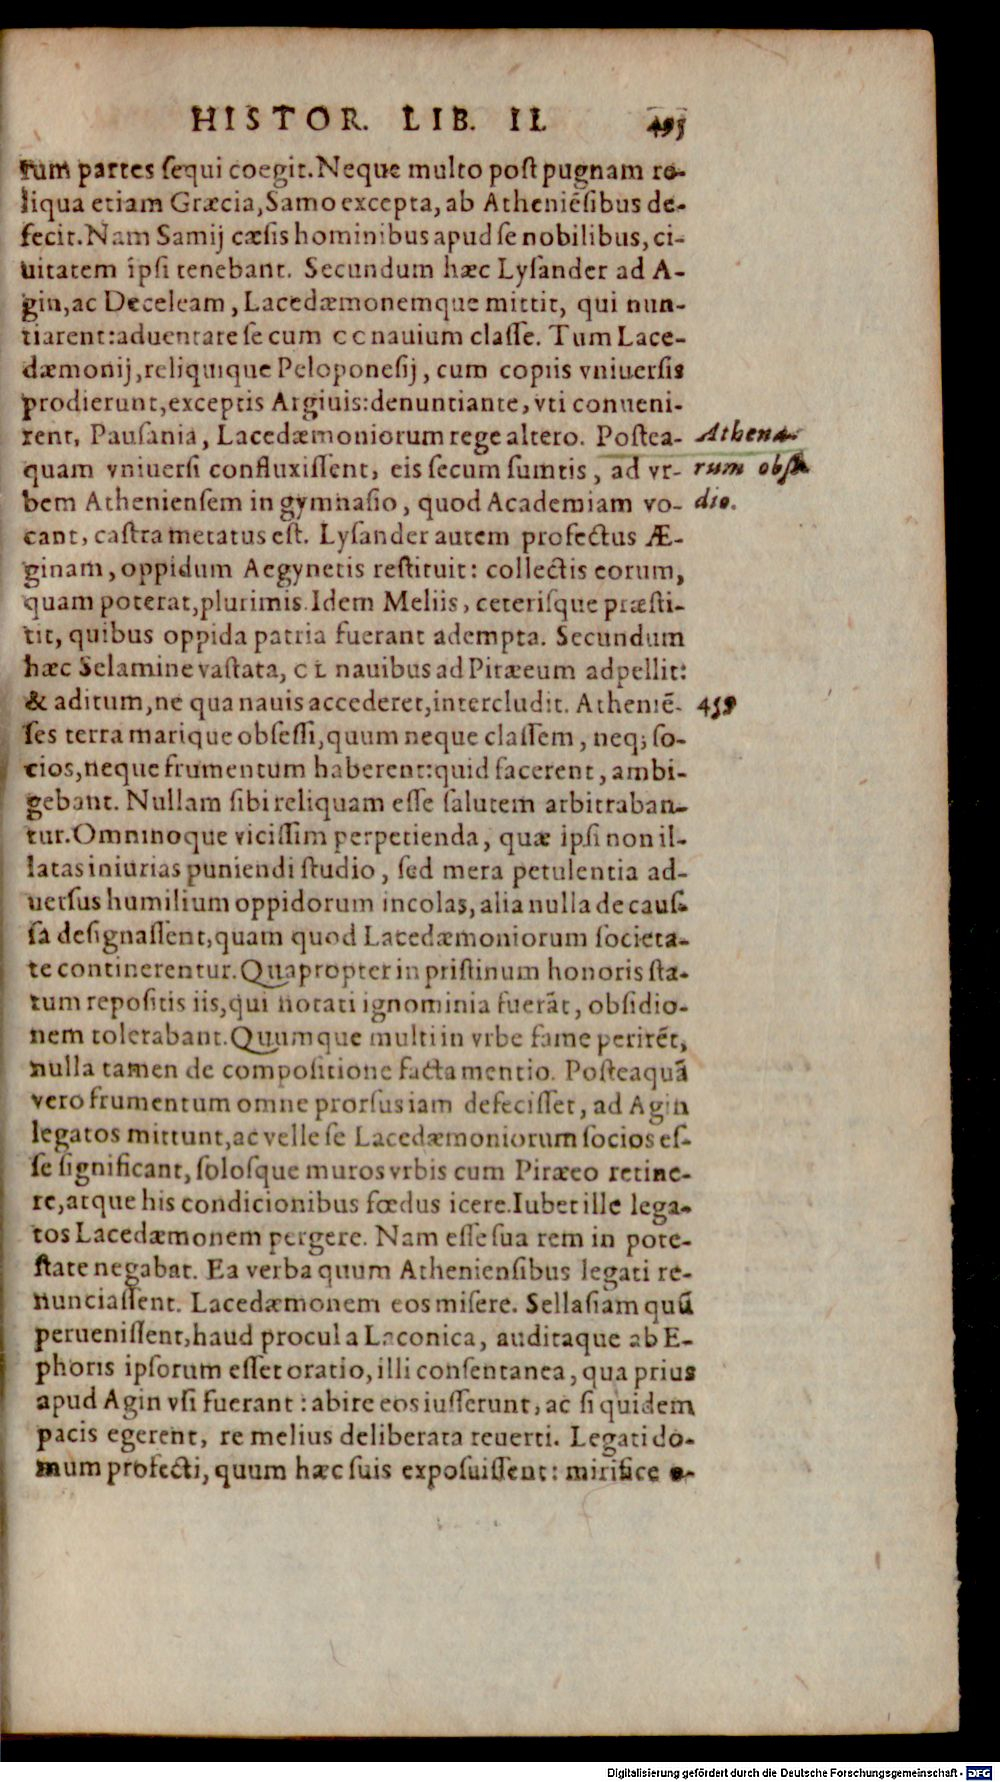 HISTOR. LIB. II. 495
rum partes ſequi coegit. Neque multo poſt pugnam re-
liqua etiam Græcia, Samo excepta, ab Atheniẽſibus de-
fecit. Nam Samij cæſis hominibus apud ſe nobilibus, ci-
uitatem ipſi tenebant. Secundum hæc Lyſander ad A-
gin, ac Deceleam, Lacedæmonemque mittit, qui nun-
tiarent: aduentare ſe cum CC nauium claſſe. Tum Lace-
dæmonij, reliquique Peloponeſij, cum copiis vniuerſis
prodierunt, exceptis Argiuis: denuntiante, vti conueni-
rent, Pauſania, Lacedæmoniorum rege altero. Poſtea- Athena-
quam vniuerſi confluxiſſent, eis ſecum ſumtis, ad vr- rum obſi-
bem Athenienſem in gymnaſio, quod Academiam vo- dio.
cant, caſtra metatus eſt. Lyſander autem profectus Æ-
ginam, oppidum Aegynetis reſtituit: collectis eorum,
quam poterat, plurimis. Idem Meliis, ceteriſque præſti-
tit, quibus oppida patria fuerant adempta. Secundum
hæc Selamine vaſtata, CL nauibus ad Piræeum adpellit:
& aditum, ne qua nauis accederet, intercludit. Atheniẽ- 459
ſes terra marique obſeſſi, quum neque claſſem, neq; ſo-
cios, neque frumentum haberent: quid facerent, ambi-
gebant. Nullam ſibi reliquam eſſe ſalutem arbitraban-
tur. Omninoque viciſſim perpetienda, quæ ipſi non il-
latas iniurias puniendi ſtudio, ſed mera petulentia ad-
uerſus humilium oppidorum incolas, alia nulla de cauſ-
ſa deſignaſſent, quam quod Lacedæmoniorum ſocieta-
te continerentur. Quapropter in priſtinum honoris ſta-
tum repoſitis iis, qui notati ignominia fuerãt, obſidio-
nem tolerabant. Quumque multi in vrbe fame perirẽt,
nulla tamen de compoſitione facta mentio. Poſteaquã
vero frumentum omne prorſus iam defeciſſet, ad Agin
legatos mittunt, ac velle ſe Lacedæmoniorum ſocios eſ-
ſe ſignificant, ſoloſque muros vrbis cum Piræeo retine-
re, atque his condicionibus fœdus icere. Iubet ille lega-
tos Lacedæmonem pergere. Nam eſſe ſua rem in pote-
ſtate negabat. Ea verba quum Athenienſibus legati re-
nunciaſſent. Lacedæmonem eos miſere. Sellaſiam quũ
perueniſſent, haud procul a Laconica, auditaque ab E-
phoris ipſorum eſſet oratio, illi conſentanea, qua prius
apud Agin vſi fuerant: abire eos iuſſerunt, ac ſi quidem
pacis egerent, re melius deliberata reuerti. Legati do-
mum profecti, quum hæc ſuis expoſuiſſent: mirifice o-
Digitalisierung gefördert durch die Deutsche Forschungsgemeinschaft - DFG